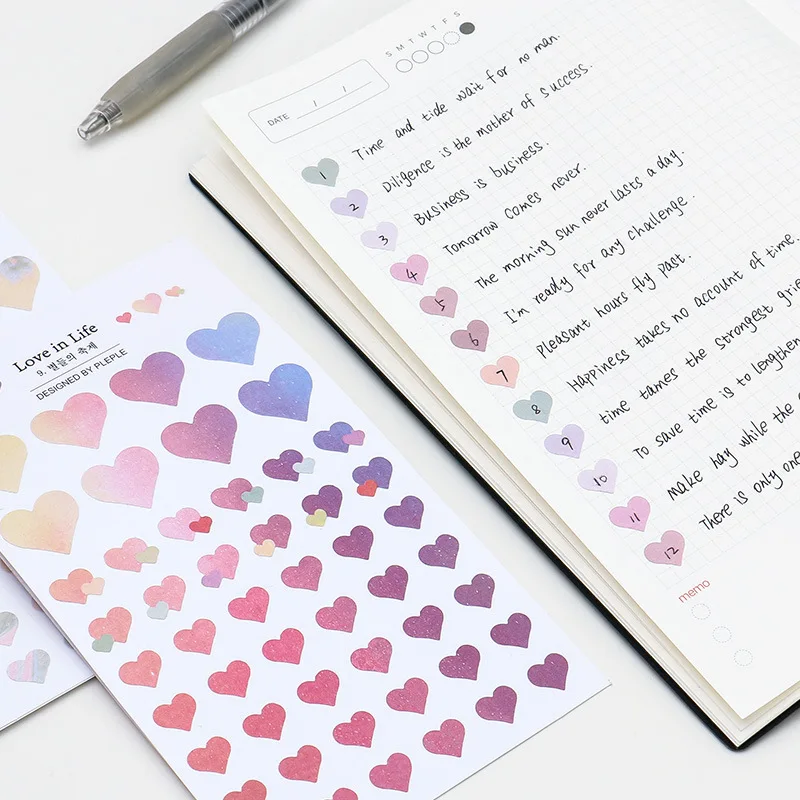 S M T W T F S
DATE / /
1 Time and tide wait for no man.
2 Diligence is the mother of success.
3 Business is business.
4 Tomorrow comes never.
5 The morning sun never lasts a day.
6 I'm ready for any challenge.
7 Pleasant hours fly past.
8 Happiness takes no account of time.
9 time tames the strongest
10 To save time is to
11 Make hay while the
12 There is only one
memo
Love in Life
9. 별들의 축제
DESIGNED BY PLEPLE